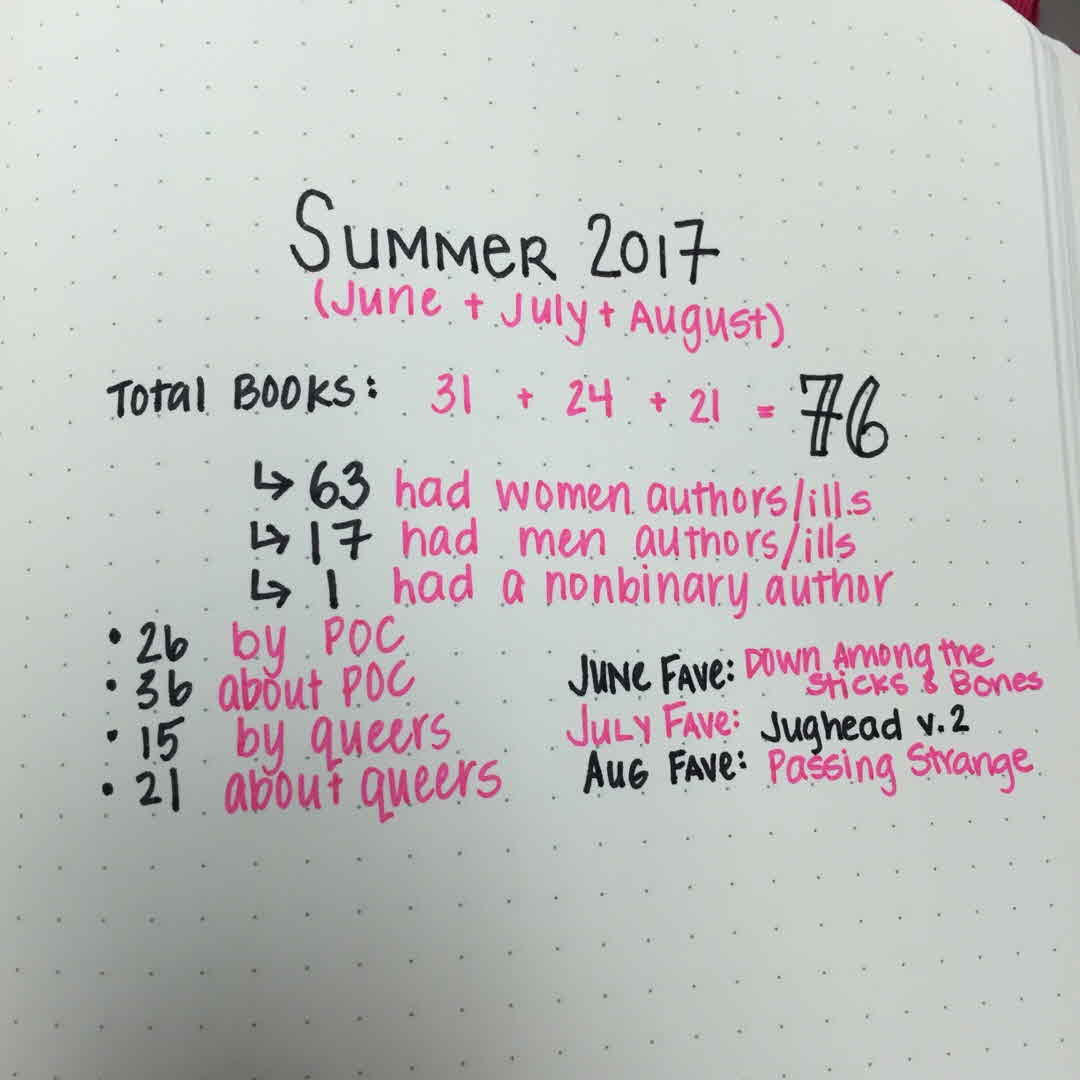 Summer 2017
(June + July + August)
Total Books: 31 + 24 + 21 = 76
↳ 63 had women authors/ill.s
↳ 17 had men authors/ills
↳ 1 had a nonbinary author
• 26 by POC
• 36 about POC
• 15 by queers
• 21 about queers
June Fave: Down Among the
Sticks & Bones
July Fave: Jughead v.2
Aug Fave: Passing Strange